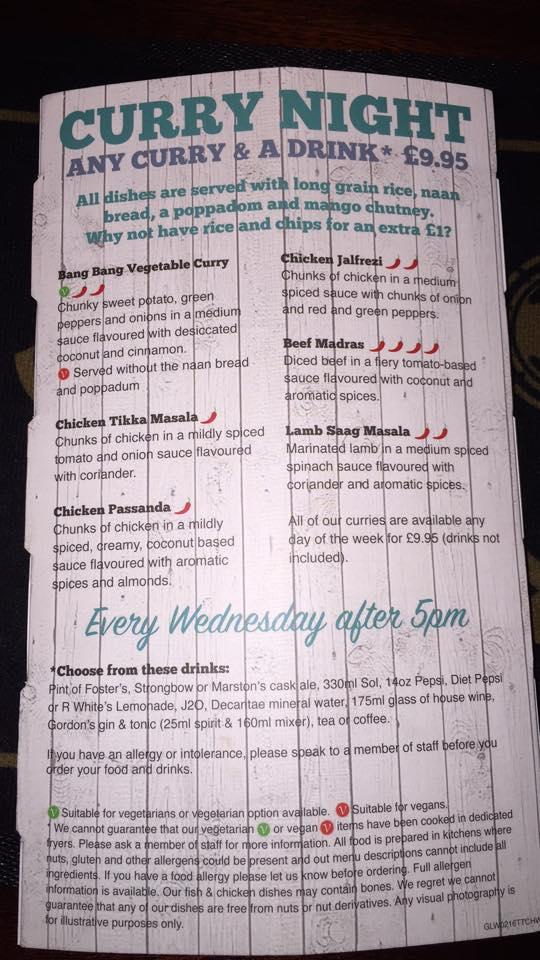 CURRY NIGHT
ANY CURRY & A DRINK* £9.95
All dishes are served with long grain rice, naan
bread, a poppadom and mango chutney.
Why not have rice and chips for an extra £1?
Bang Bang Vegetable Curry
V
Chunky sweet potato, green
peppers and onions in a medium
sauce flavoured with desiccated
coconut and cinnamon.
V Served without the naan bread
and poppadum
Chicken Tikka Masala
Chunks of chicken in a mildly spiced
tomato and onion sauce flavoured
with coriander.
Chicken Passanda
Chunks of chicken in a mildly
spiced, creamy, coconut based
sauce flavoured with aromatic
spices and almonds.
Chicken Jalfrezi
Chunks of chicken in a medium
spiced sauce with chunks of onion
and red and green peppers.
Beef Madras
Diced beef in a fiery tomato-based
sauce flavoured with coconut and
aromatic spices.
Lamb Saag Masala
Marinated lamb in a medium spiced
spinach sauce flavoured with
coriander and aromatic spices.
All of our curries are available any
day of the week for £9.95 (drinks not
included).
Every Wednesday after 5pm
*Choose from these drinks:
Pint of Foster's, Strongbow or Marston's cask ale, 330ml Sol, 14oz Pepsi, Diet Pepsi
or R White's Lemonade, J2O, Decantae mineral water, 175ml glass of house wine,
Gordon's gin & tonic (25ml spirit & 160ml mixer), tea or coffee.
If you have an allergy or intolerance, please speak to a member of staff before you
order your food and drinks.
V Suitable for vegetarians or vegetarian option available. V Suitable for vegans.
* We cannot guarantee that our vegetarian V or vegan V items have been cooked in dedicated
fryers. Please ask a member of staff for more information. All food is prepared in kitchens where
nuts, gluten and other allergens could be present and out menu descriptions cannot include all
ingredients. If you have a food allergy please let us know before ordering. Full allergen
information is available. Our fish & chicken dishes may contain bones. We regret we cannot
guarantee that any of our dishes are free from nuts or nut derivatives. Any visual photography is
for illustrative purposes only.